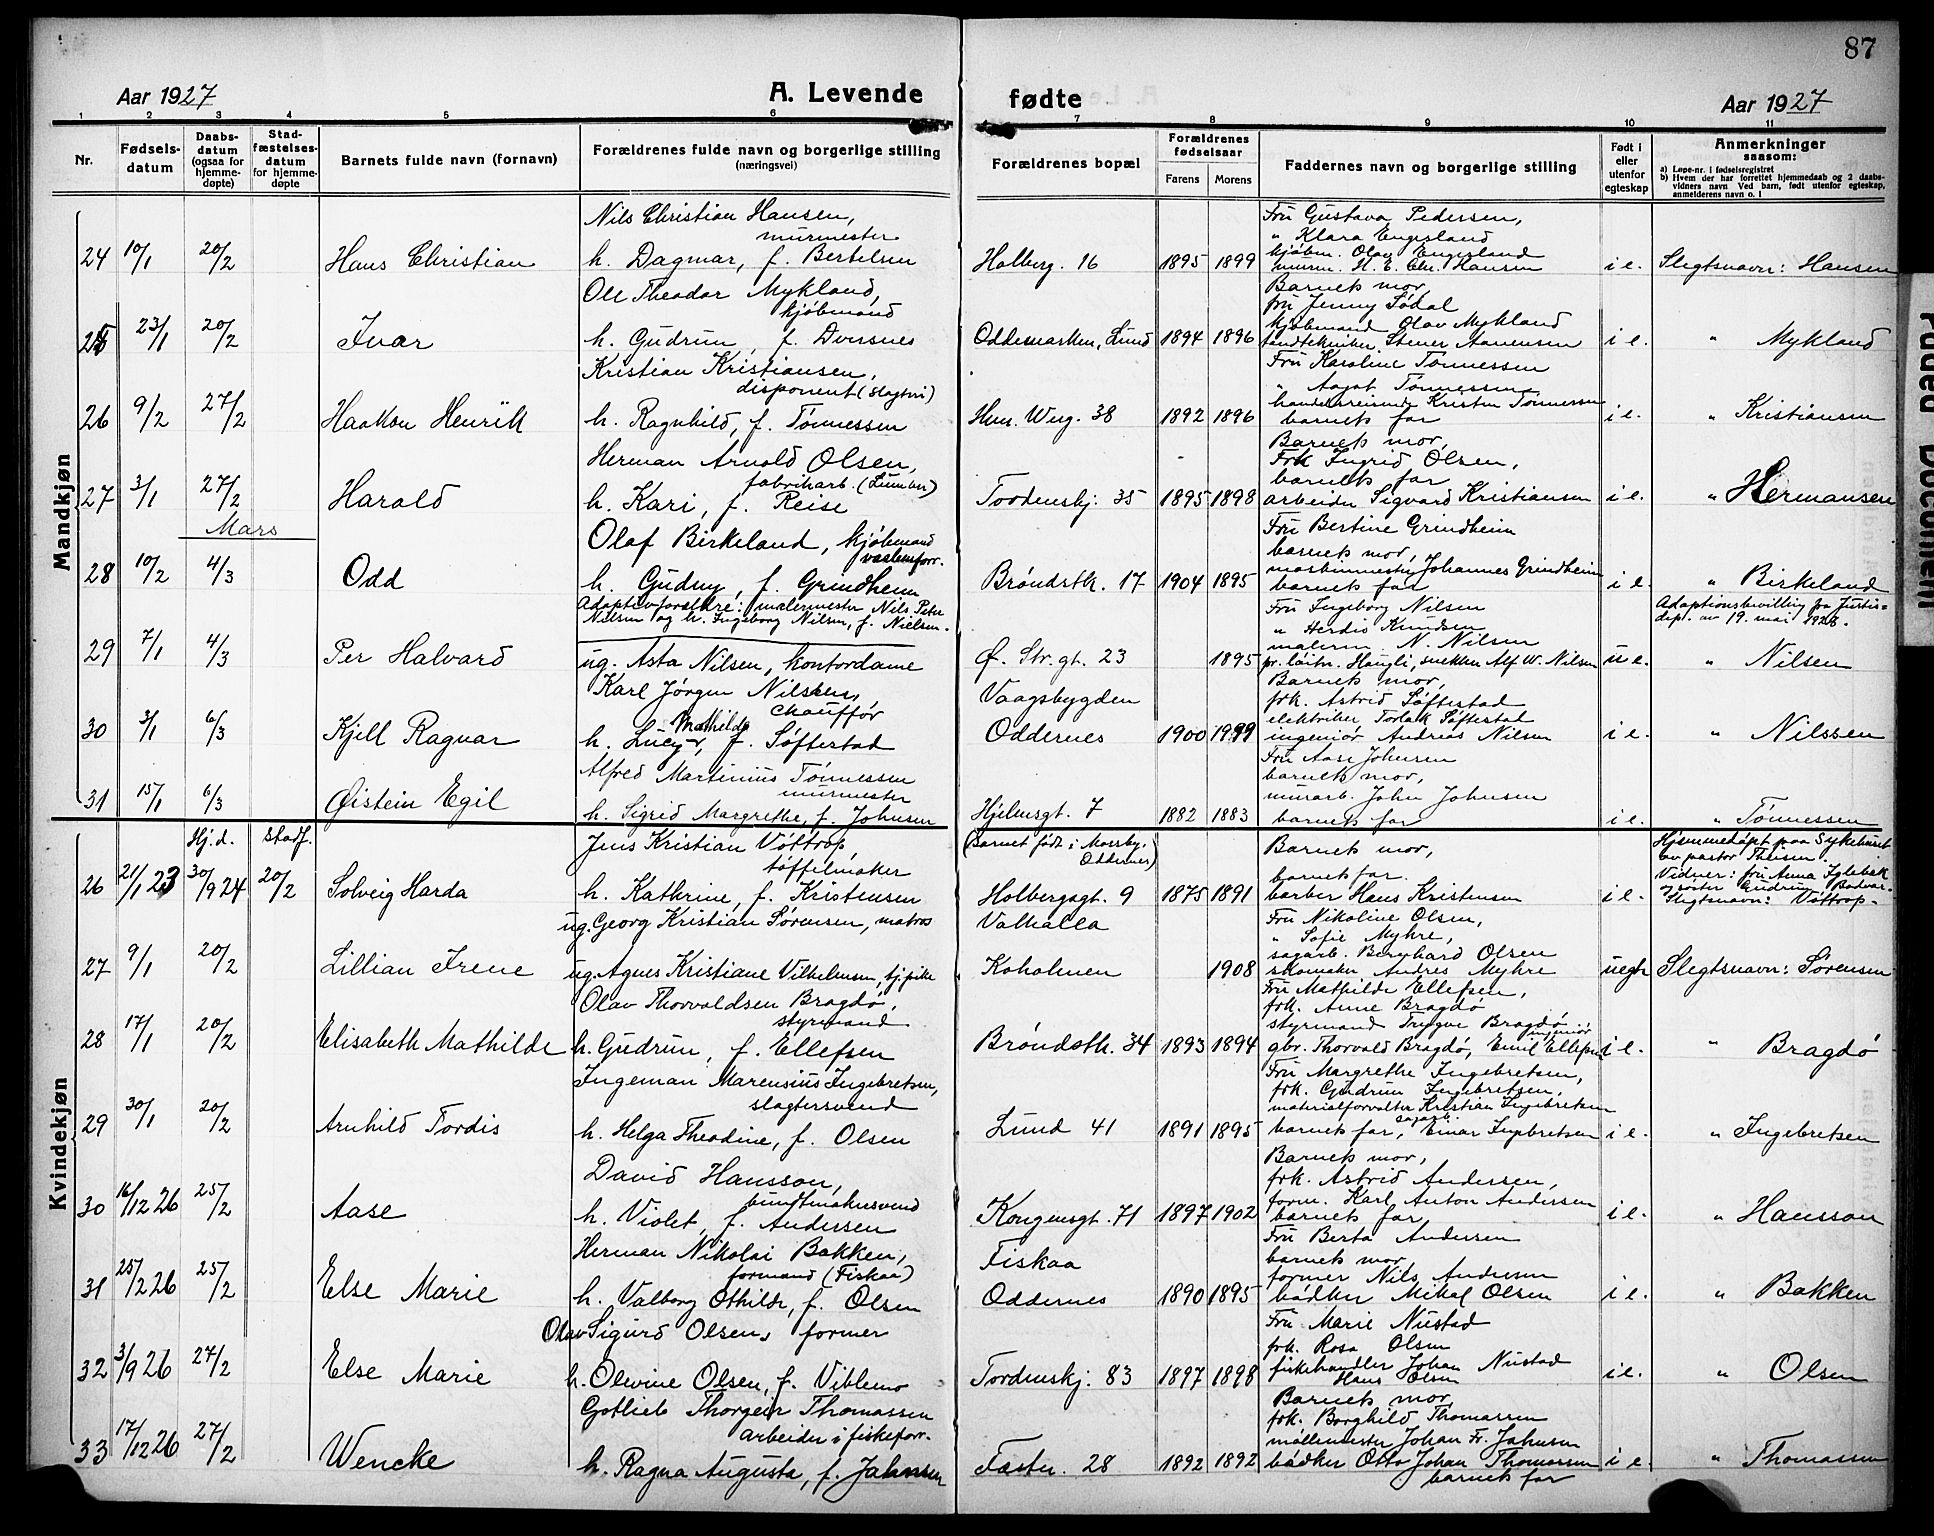 87
Aar 1927 A. Levende fødte Aar 1927
1 2 3 4 5 6 7 8 9 10 11
Nr. Fødselsdatum Daabsdatum (ogsaa for hjemmedøpte) Stadfæstelsesdatum for hjemmedøpte Barnets fulde navn (fornavn) Forældrenes fulde navn og borgerlige stilling (næringsvei) Forældrenes bopæl Forældrenes fødselsaar Farens Morens Faddernes navn og borgerlige stilling Født i eller utenfor egteskap Anmerkninger saasom:
a) Løpe-nr. i fødselsregistret
b) Hvem der har forrettet hjemmedaab og 2 daabsvidners navn Ved barn, født utenfor egteskap, anmelderens navn o. l
Mandkjøn
24 10/1 20/2 Hans Christian
Nils Christian Hansen,
murmester
h. Dagmar, f. Bertelsen
Holberg. 16 1895 1899
Fru Gustava Pedersen,
" Klara Engesland
kjøbm. Olav Engesland
murm. H. E. Chr. Hansen
i e. Slegtsnavn: Hansen
25 23/1 20/2 Ivar
Ole Theodor Mykland,
kjøbmand
h. Gudrun, f. Dversnes
Oddemarken, Lund 1894 1896
Barnets mor,
fru Jenny Sødal
kjøbmand Olav Mykland
tandtekniker Stener Aanensen
i e. " Mykland
26 9/2 27/2 Haakon Henrik
Kristian Kristiansen,
disponent (slagteri)
h. Ragnhild, f. Tønnessen
Hen. Werg. 38 1892 1896
Fru Karoline Tønnessen
" Aagot Tønnessen
handelsreisende Kristen Tønnessen
barnets far
i e. " Kristiansen
27 3/1 27/2 Harald
Herman Arnold Olsen,
fabrikarb. (Lumber)
h. Kari, f. Reise
Tordenskj. 35 1895 1898
Barnets mor,
Frk Ingrid Olsen,
barnets far
arbeider Sigvard Kristiansen
i e. " Hermansen
Mars
28 10/2 4/3 Odd
Olaf Birkeland, kjøbmand
h. Gudny, f. Grindheim
Brøndstk. 17 1904 1895
Fru Bertine Grindheim
barnets mor,
maskinmester Johannes Grindheim
barnets far
i e. " Birkeland
29 7/1 4/3 Per Halvard
Adoptivforældre: malermester Nils Peter
Nilsen og h. Ingeborg Nilsen, f. Nielsen.
ug. Asta Nilsen, kontordame
Ø. Str. gt. 23 1895
Fru Ingeborg Nilsen
" Herdis Knudsen
malerm N. Nilsen
pr. løitn. Haugli, snekker Alf W. Nilsen
u e.
Adoptionsbevilling fra Justisdep. av 19. mai 1928.
" Nilsen
30 3/1 6/3 Kjell Ragnar
Karl Jørgen Nilssen,
chauffør
h. Lucy Mathilde, f. Søftestad
Vaagsbygden
Oddernes 1900 1899
Barnets mor,
frk. Astrid Søftestad
elektriker Torlak Søftestad
ingeniør Andreas Nilsen
i e. " Nilssen
31 15/1 6/3 Øistein Egil
Alfred Martinius Tønnessen
murmester
h. Sigrid Margrethe, f. Johnsen
Hjelmsgt. 7 1882 1883
Fru Aase Johnsen
barnets mor,
murarb. John Johnsen
barnets far
i e. " Tønnessen
Kvindekjøn
Hj.d. Stadf.
26 21/1 23 30/9 24 20/2 Solveig Harda
Jens Kristian Vøttrop,
tøffelmaker
h. Kathrine, f. Kristensen
(Barnet født i Mosby. Oddernes)
Holbergsgt. 9 1875 1891
Barnets mor,
barnets far.
barber Hans Kristensen
i e.
Hjemmedøpt paa Sykehuset
av pastor Theisen.
Vidner: fru Anna Iglebæk
og søster Gudrun Bodvar.
Slegtsnavn: Vøttrop.
27 9/1 20/2 Lillian Irene
ug. Georg Kristian Sørensen, matros
ug. Agnes Kristiane Vilhelmsen, tj.pike
Valhalla
Koholmen 1908
Fru Nikoline Olsen,
" Sofie Myhre,
sagarb. Bernhard Olsen
skomaker Andres Myhre
uegt. Slegtsnavn: Sørensen
28 17/1 20/2 Elisabeth Mathilde
Olav Thorvaldsen Bragdø,
styrmand
h. Gudrun, f. Ellefsen
Brøndstk. 34 1893 1894
Fru Mathilde Ellefsen,
frk. Anne Bragdø
styrmand Trygve Bragdø
gbr. Thorvald Bragdø, ingeniør Emil Ellefsen
i e. " Bragdø
29 30/1 20/2 Arnhild Tordis
Ingeman Marensius Ingebretsen,
slagtersvend
h. Helga Theodine, f. Olsen
Lund 41 1891 1895
Fru Margrethe Ingebretsen,
frk. Gudrun Ingebretsen,
materialforvalter Kristian Ingebretsen
barnets far, sagarb. Einar Ingebretsen
i e. " Ingebretsen
30 16/12 26 25/2 Aase
David Hansson,
buntmakersvend
h. Violet, f. Andersen
Kongensgt. 71 1897 1902
Barnets mor,
frk. Astrid Andersen,
form. Karl Anton Andersen
barnets far
i e. " Hansson
31 25/2 26 25/2 Else Marie
Herman Nikolai Bakken,
formand (Fiskaa)
h. Valborg Othilde, f. Olsen
Fiskaa
Oddernes 1890 1895
Fru Berta Andersen
barnets mor
former Nils Andersen
bødker Mikal Olsen
i e. " Bakken
32 3/9 26 27/2 Else Marie
Olav Sigurd Olsen, former
h. Olevine Olsen, f. Viblemo
Tordenskj. 83 1897 1898
Fru Marie Nustad
frk. Rosa Olsen
fiskehandler Johan Nustad
Hans Olsen
i e. " Olsen
33 17/12 26 27/2 Wencke
Gotlieb Thorgeir Thomassen
arbeider i fiskeforr.
h. Ragna Augusta, f. Jahnsen
Fæstn. 28 1892 1892
Barnets mor,
frk. Borghild Thomassen
møllemester Johan Fr. Jahnsen
bødker Otto Johan Thomassen
barnets far
i e. " Thomassen